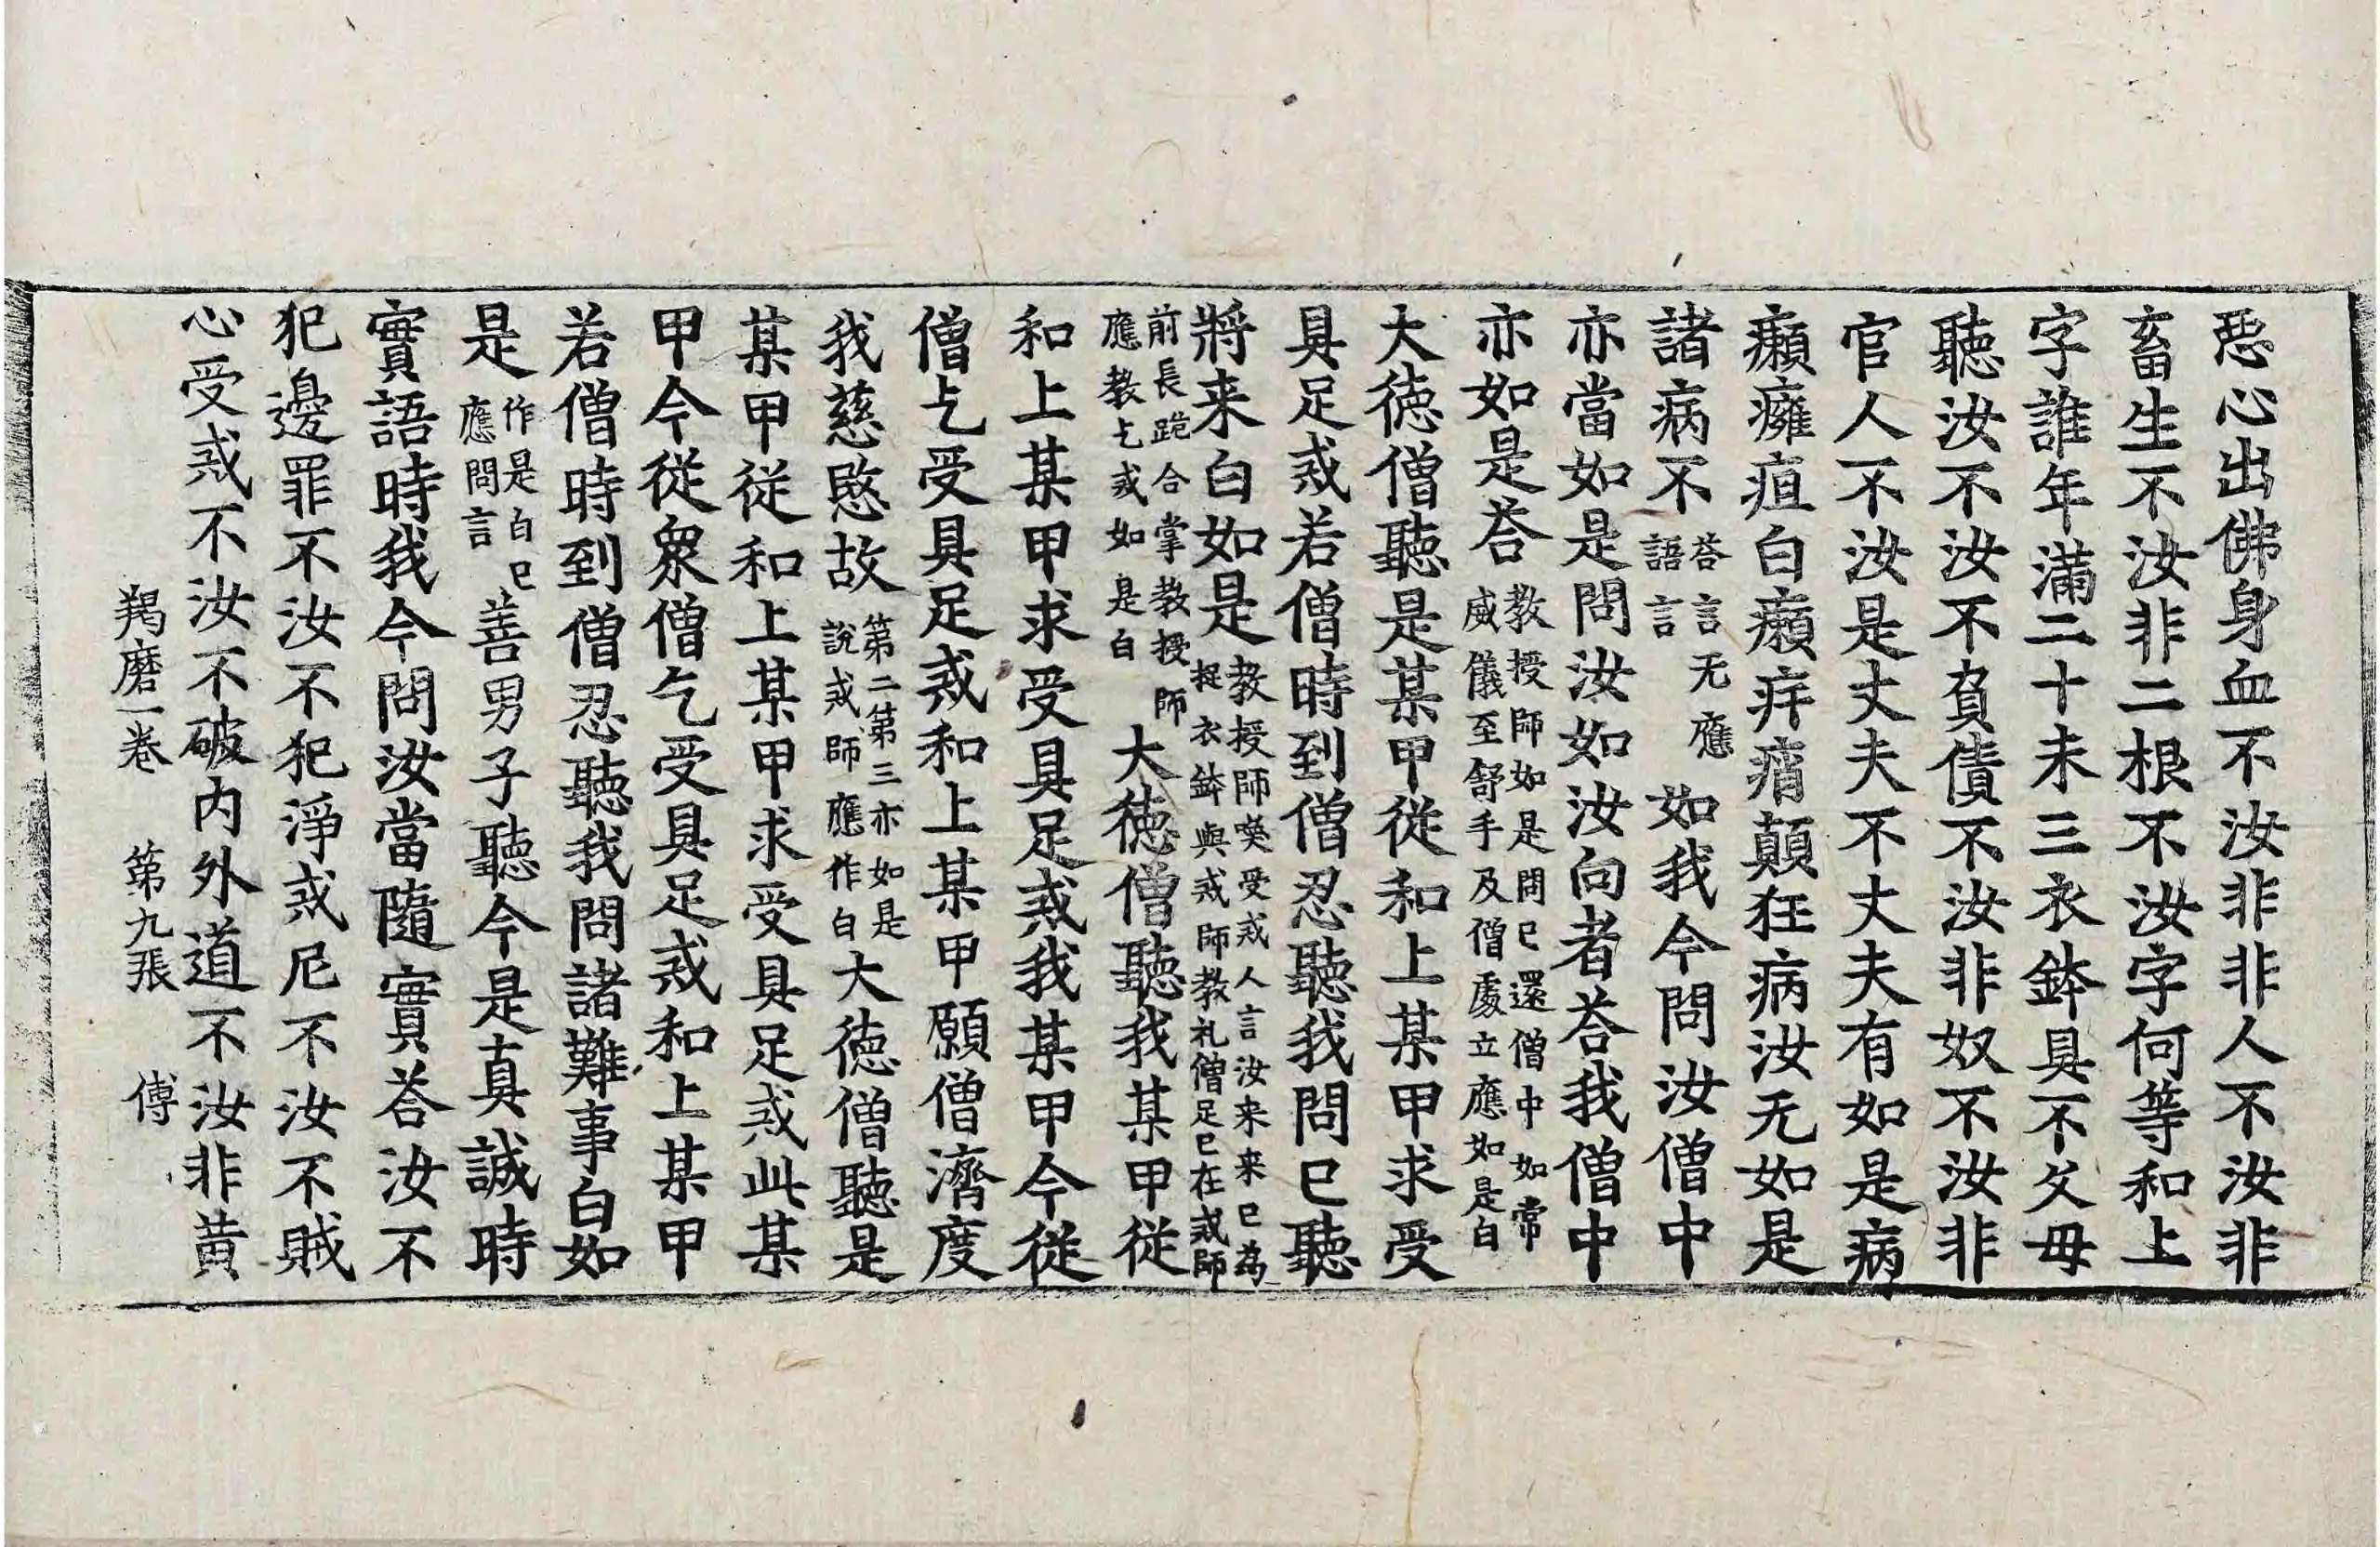 惡心出佛身血不汝非非人不汝非
畜生不汝非二根不汝字何等和上
字誰年滿二十未三衣鉢具不父母
聽汝不汝不負債不汝非奴不汝非
官人不汝是丈夫不丈夫有如是病
癩癰疽白癩痒痟顛狂病汝无如是
諸病不荅言无應語言如我今問汝僧中
亦當如是問汝如汝向者荅我僧中
亦如是荅教授師如是問已還僧中如常威儀至舒手及僧處立應如是白
大德僧聽是某甲從和上某甲求受
具足戒若僧時到僧忍聽我問已聽
將来白如是教授師喚受戒人言汝来来已為捉衣鉢與戒師教礼僧足已在戒師
前長跪合掌教授師應教乞戒如是白大德僧聽我某甲從
和上某甲求受具足戒我某甲今從
僧乞受具足戒和上某甲願僧濟度
我慈愍故第二第三亦如是說戒師應作白大德僧聽是
某甲從和上某甲求受具足戒此某
甲今從衆僧乞受具足戒和上某甲
若僧時到僧忍聽我問諸難事白如
是作是白已應問言善男子聽今是真誠時
實語時我今問汝當隨實荅汝不
犯邊罪不汝不犯淨戒尼不汝不賊
心受戒不汝不破内外道不汝非黄
羯磨一卷 第九張 傅